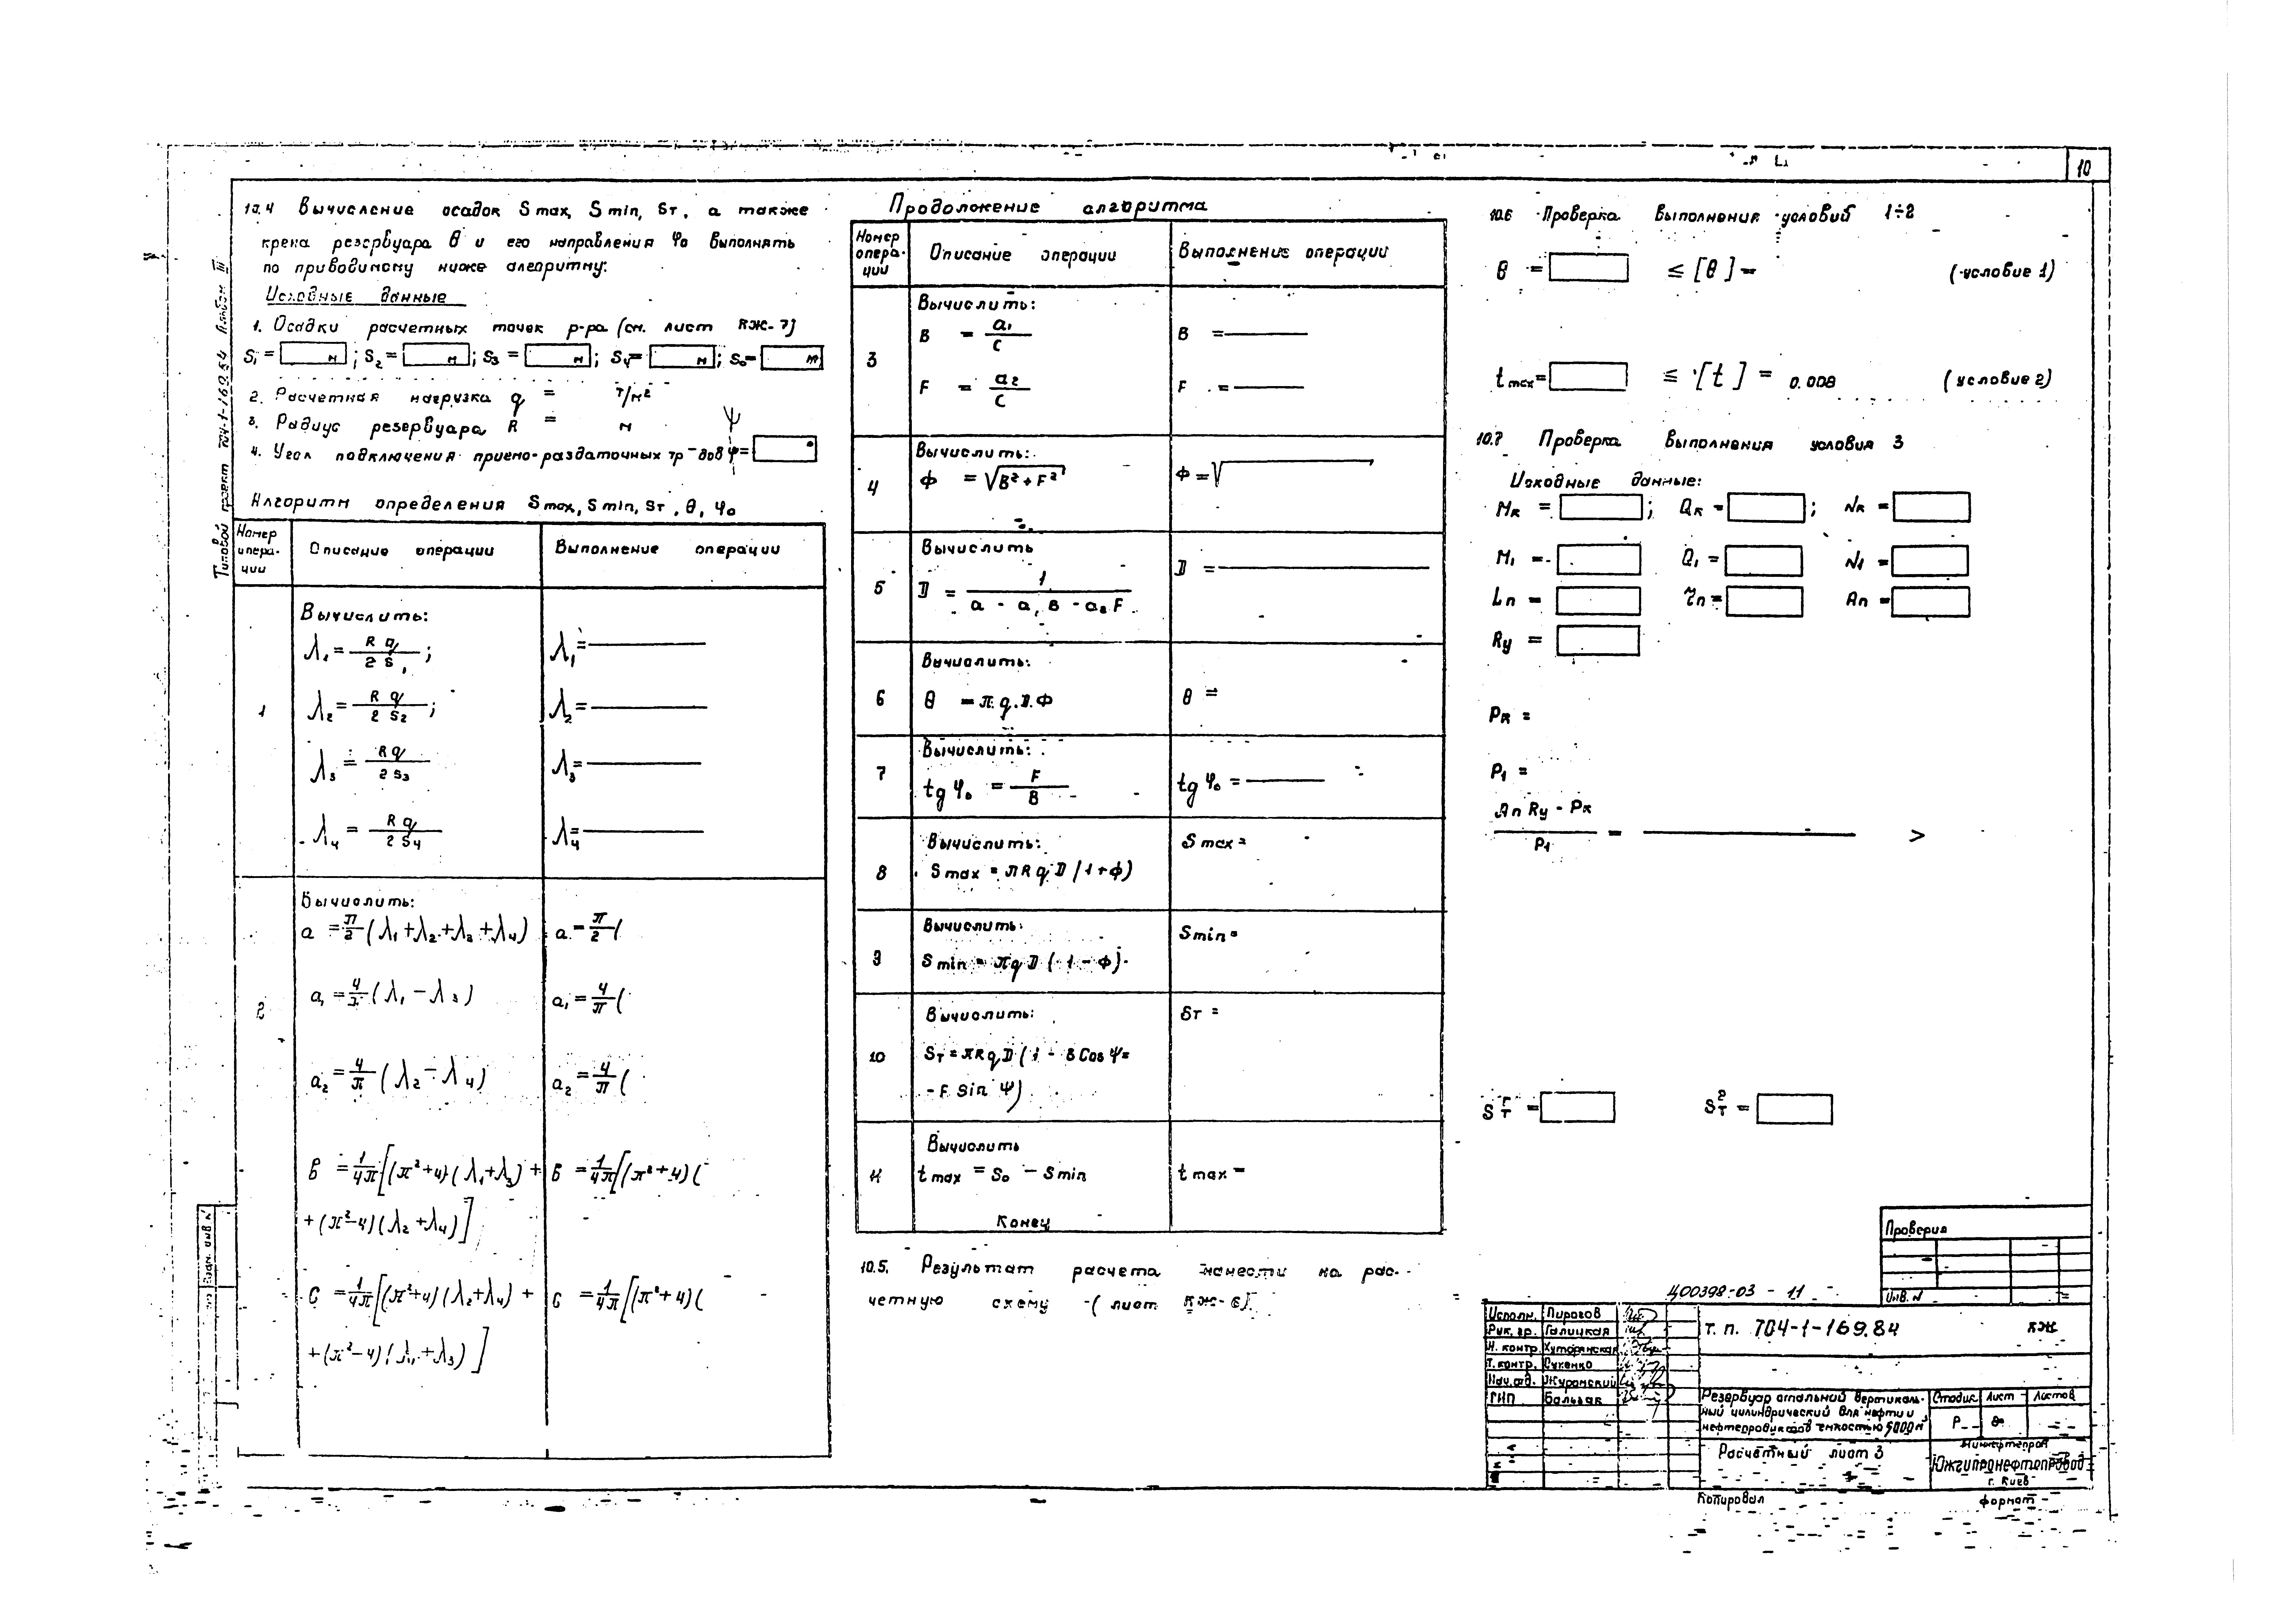 10
Типовой проект 704-1-169.84 Альбом III
10.4 Вычисление осадок Smax, Smin, Sт, а также
крена резервуара θ и его направления φ₀ выполнять
по приводимому ниже алгоритму:
Исходные данные
1. Осадки расчетных точек р-ра (см. лист КЖ-7)
S₁ = м ; S₂ = м ; S₃ = м ; S₄ = м ; S₀ = м
2. Расчетная нагрузка q = т/м²
3. Радиус резервуара R = м
4. Угол подключения приемо-раздаточных тр-дов ψ = °
Алгоритм определения Smax, Smin, Sт, θ, φ₀
Номер операции
Описание операции
Выполнение операции
1
Вычислить:
λ₁ = R q / 2 S₁ ;
λ₁ =
λ₂ = R q / 2 S₂ ;
λ₂ =
λ₃ = R q / 2 S₃
λ₃ =
λ₄ = R q / 2 S₄
λ₄ =
2
Вычислить:
a = π/2 (λ₁ + λ₂ + λ₃ + λ₄)
a = π/2 (
a₁ = 4/π (λ₁ − λ₃)
a₁ = 4/π (
a₂ = 4/π (λ₂ − λ₄)
a₂ = 4/π (
в = 1/4π [(π² + 4)(λ₁ + λ₃) +
+ (π² − 4)(λ₂ + λ₄)]
в = 1/4π [(π² + 4)(
c = 1/4π [(π² + 4)(λ₂ + λ₄) +
+ (π² − 4)(λ₁ + λ₃)]
c = 1/4π [(π² + 4)(
Продолжение алгоритма
Номер операции
Описание операции
Выполнение операции
3
Вычислить:
B = a₁ / c
B =
F = a₂ / c
F =
4
Вычислить:
Ф = √B² + F²
Ф = √
5
Вычислить
D = 1 / a − a₁ B − a₂ F
D =
6
Вычислить:
θ = π. q. D. Ф
θ =
7
Вычислить:
tg φ₀ = F / B
tg φ₀ =
8
Вычислить:
S max = π R q D (1 + Ф)
S max =
9
Вычислить:
S min = π q D (1 − Ф)
S min =
10
Вычислить:
Sт = π R q D (1 − B Cos ψ =
− F Sin ψ)
Sт =
11
Вычислить
t max = S₀ − S min
t max =
Конец
10.5. Результат расчета нанести на рас-
четную схему (лист КЖ-6).
10.6 Проверка выполнения условий 1÷2
θ = ≤ [θ] = (условие 1)
t max = ≤ [t] = 0.008 (условие 2)
10.7 Проверка выполнения условия 3
Исходные данные:
Mк = ; Qк = ; Nк =
M₁ = Q₁ = N₁ =
Lп = τп = Aп =
Rу =
Pк =
P₁ =
Aп Rу − Pк / P₁ = >
Sт = Sт =
Проверил
Инв. N
Ц00398-03 - 11
Исполн. Пирогов
Рук. гр. Галицкая
Н. контр. Хуторянская
Т. контр. Сукенко
Нач. отд. Журомский
ГИП
т. п. 704-1-169.84 КЖ
Резервуар стальной вертикаль-
ный цилиндрический для нефти и
нефтепродуктов емкостью 5000 м³
Стадия Лист Листов
Р 8
Расчетный лист 3
Миннефтепром
Южгипронефтепровод
г. Киев
Взам. инв. N
Копировал
формат